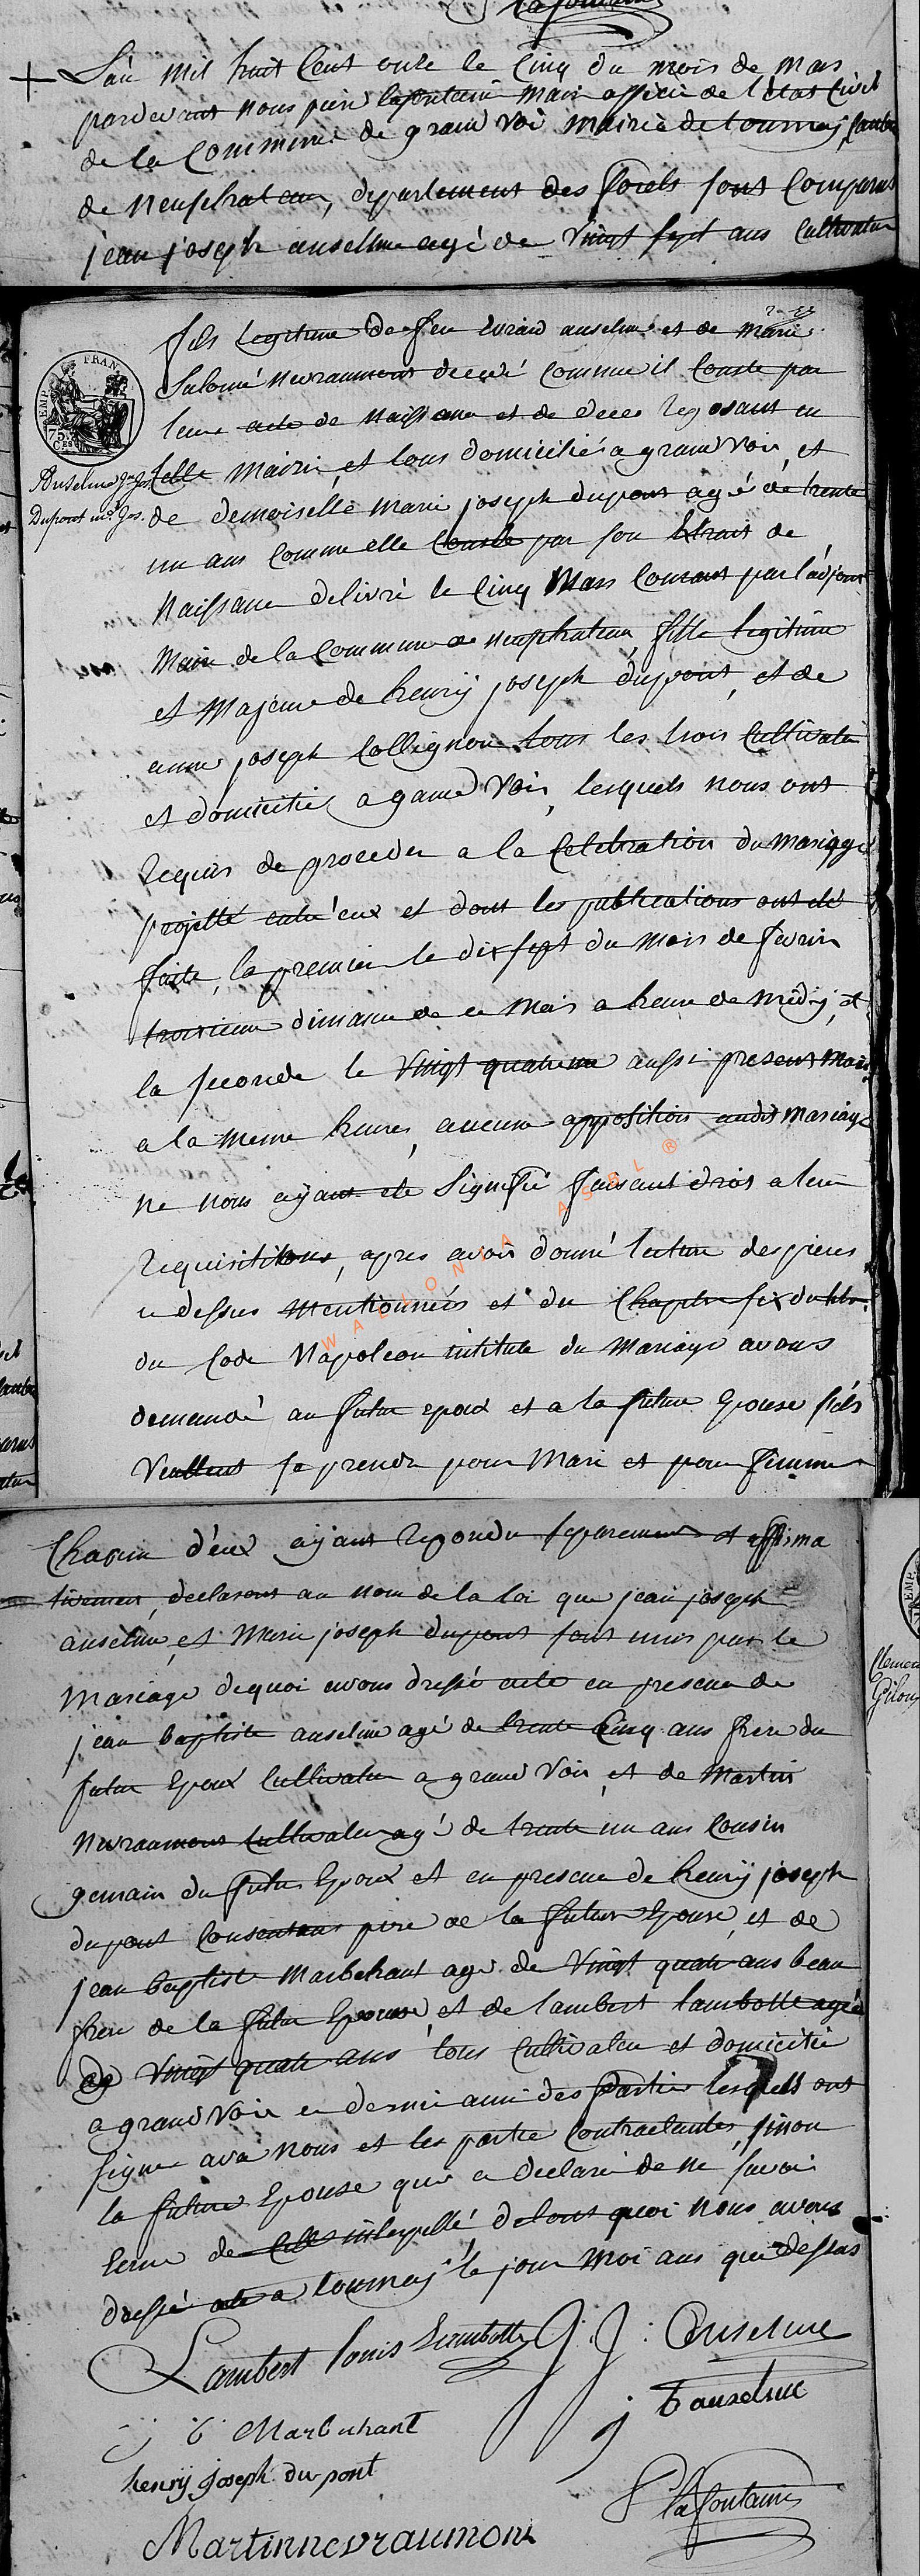 lafontaine
L'an mil huit Cent onze le Cinq du mois de Mars
pardevant nous piere lafontaine Maire officier de l'état Civil
de la Commune de grand voir Mairie de tournay, Canton
de Neufchateau, departement des forets sont Comparus
jean joseph anselme agé de Vingt sept ans Cultivateur
fils legitime de feu evrard anselme et de Marie
Salomé Nevraumont decedé Comme il Conste par
leurs acte de Naissance et de deces reposant en
Celle Mairie, et tous domiciliés a grand Voir, et
Anselme Jn Jos.
Dupont me. Jos.
de demoiselle Marie joseph dupont agé de trente
un ans Comme elle Conste par son Extrait de
Naissance delivré le Cinq Mars Courant par l'adjoint
Maire de la Commune de neuphateau, fille legitime
et Majeure de henrij joseph dupont, et de
anne joseph Collignon tous les trois Cultivateur
et domicilié a grand Voir, lesquels nous ont
requis de proceder a la Celebration du Mariage
projetté entre eux et dont les publications ont été
faite, la premier le dix sept du mois de fevrier
troisieme dimanche de ce Mois a heure de Midij, et
la seconde le Vingt quatrieme aussi present mois
a la meme heures, aucune apposition audit Mariage
ne nous aijant ete Signifié faisant droit a leur
requisitions, apres avoir donné lecture des pieces
ci dessus Mentionnées et du Chapitre six du titre
du Code Napoleon intitulé du Mariage avons
demandé au futur epoux et a la future Epouse s'ils
Veullent se prendre pour Mari et pour femme
Chacun d'eux aijant repondu separement et affirma
tivement, declarons au nom de la loi que jean joseph
anselme, et Marie joseph dupont sont unis par le
Mariage dequoi avons dressé acte en presence de
jean baptiste anselme agé de trente Cinq ans frere du
futur Epoux Cultivateur a grand Voir, et de Martin
Nevraumont Cultivateur agé de trente un ans Cousin
germain du futur Epoux et en presence de henrij joseph
dupont Consentant pere de la future Epouse, et de
jean baptiste Marbehant agé de Vingt quatre ans beau
frere de la future Epouse, et de lambert lambotte agée
de Vingt quatre ans tous Cultivateur et domicilié
a grand Voir ce dernier ami des partie lesquels ont
signer avec nous et les partie Contractantes, sinon
la future Epouse qui a declaré de ne savoir
Ecrire de Celle interpellé, de tout quoi nous avons
dressé acte a tournay le jour Moi ans que dessus
Lambert louis Lambotte J: J: Anselme
j b anselme
j b Marbehant
henrij joseph du-pont
P lafontaine
Martin nevraumont
WALLONIA ASBL ®